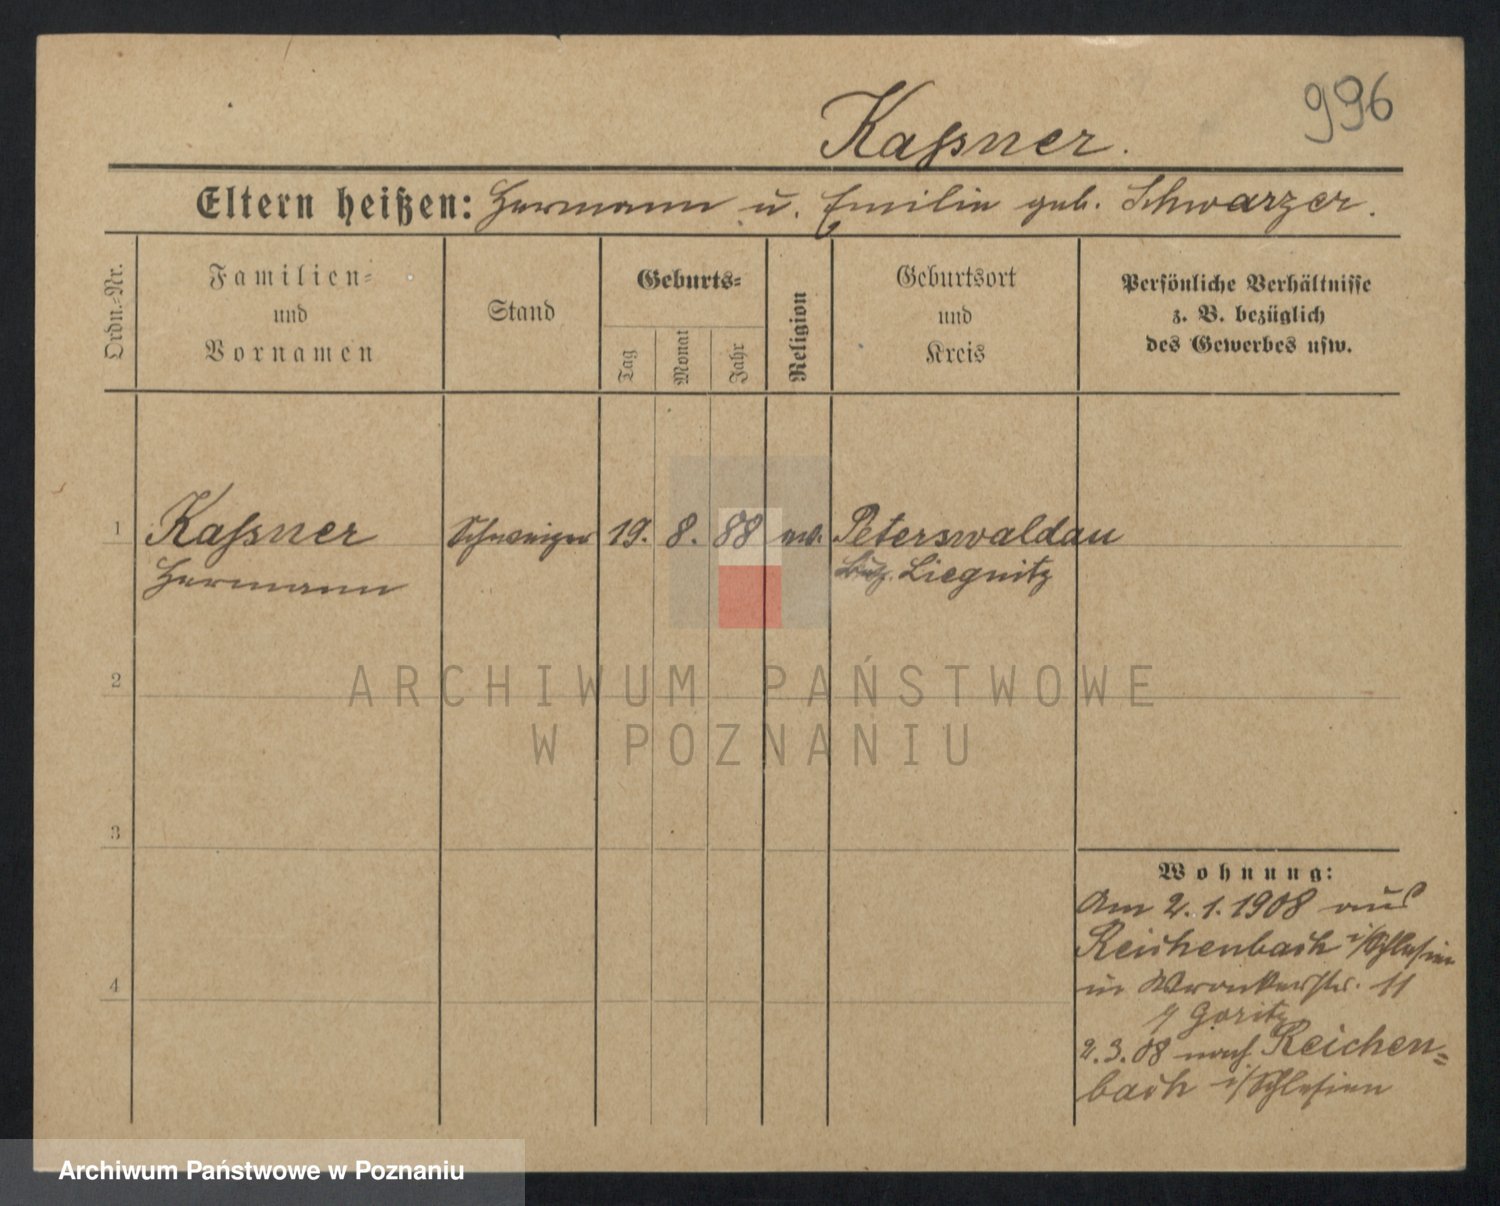 996
Kaßner.
Eltern heißen: Hermann u. Emilie geb. Schwarzer.
Ordn.-Nr.
Familien-
und
Vornamen
Stand
Geburts-
Tag
Monat
Jahr
Religion
Geburtsort
und
Kreis
Persönliche Verhältnisse
z. B. bezüglich
des Gewerbes usw.
1
Kaßner
Hermann
19. 8. 88
Peterswaldau
Liegnitz
2
3
4
Wohnung:
Am 2. 1. 1908 aus
Reichenbach i/Schlesien
in Wronkerstr. 11
Goritz
2. 3. 08 nach Reichen=
bach i/Schlesien
ARCHIWUM PAŃSTWOWE
W POZNANIU
Archiwum Państwowe w Poznaniu